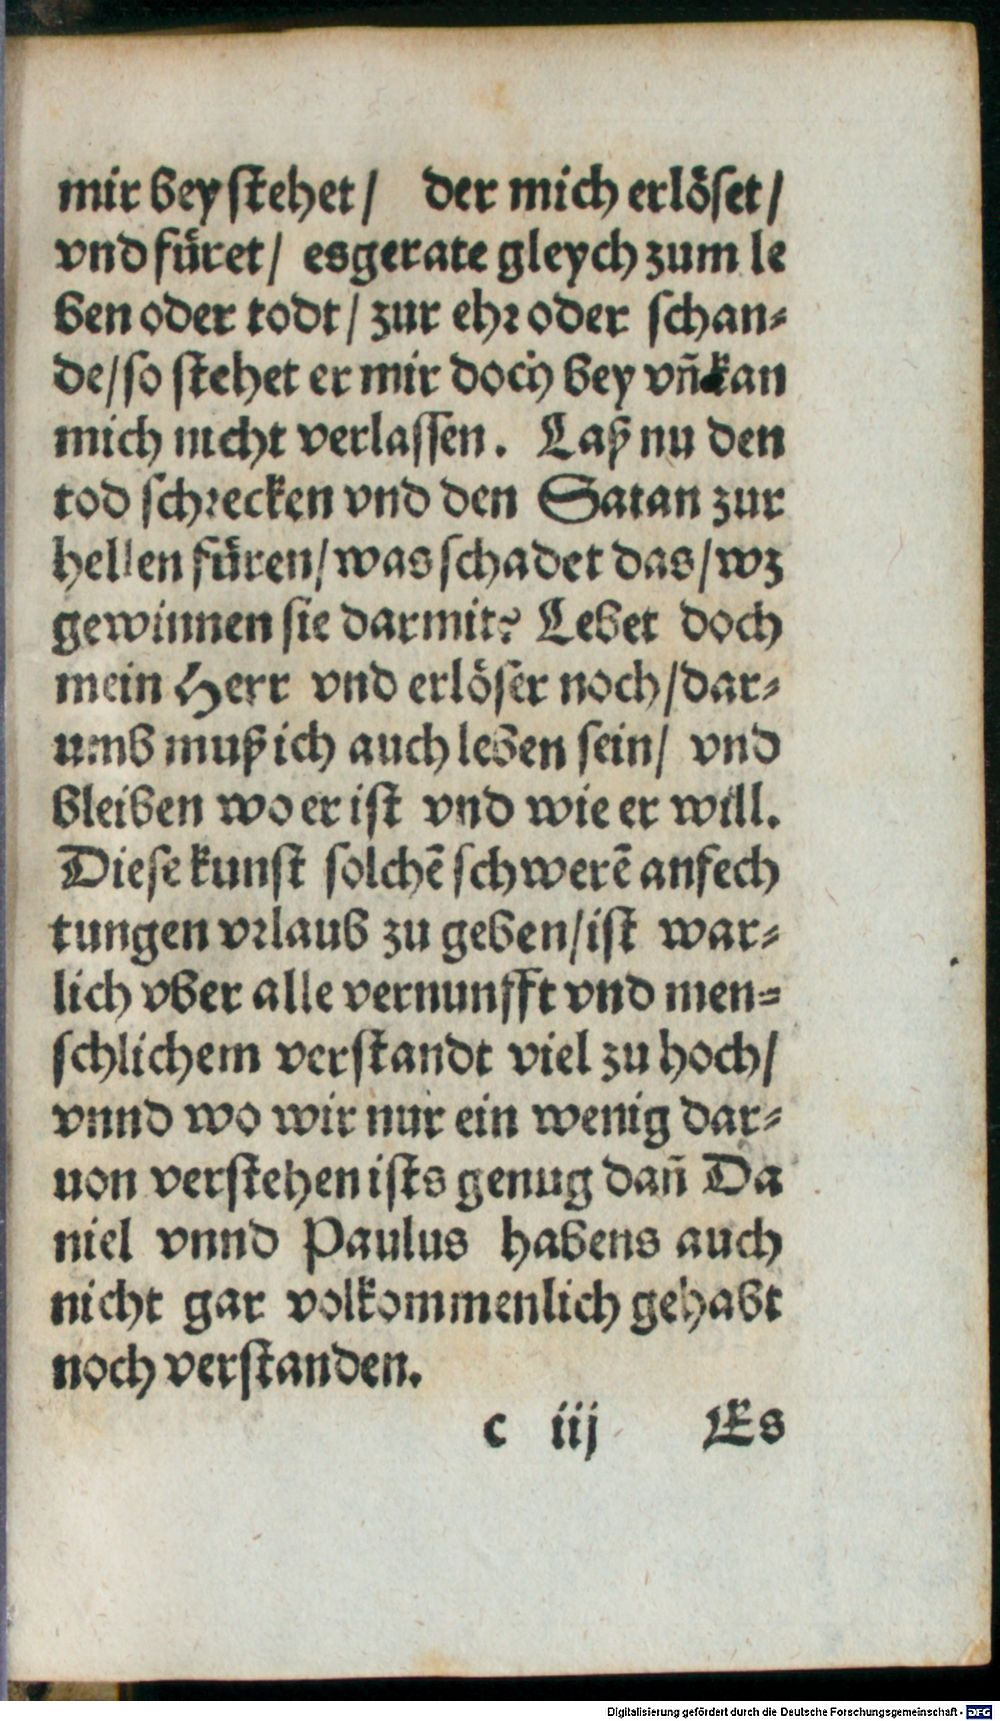 mir bey stehet / der mich erlöset /
vnd füret / es gerate gleych zum le
ben oder todt / zur ehr oder schan-
de / so stehet er mir doch bey vñ kan
mich nicht verlassen. Laß nu den
tod schrecken vnd den Satan zur
hellen füren / was schadet das / wz
gewinnen sie darmit? Lebet doch
mein Herr vnd erlöser noch / dar-
umb muß ich auch leben sein / vnd
bleiben wo er ist vnd wie er will.
Diese kunst solchē schwerē anfech
tungen vrlaub zu geben / ist war-
lich vber alle vernunfft vnd men-
schlichem verstandt viel zu hoch /
vnnd wo wir nur ein wenig dar-
uon verstehen ists genug dañ Da
niel vnnd Paulus habens auch
nicht gar volkommenlich gehabt
noch verstanden.
c iij Es
Digitalisierung gefördert durch die Deutsche Forschungsgemeinschaft - DFG